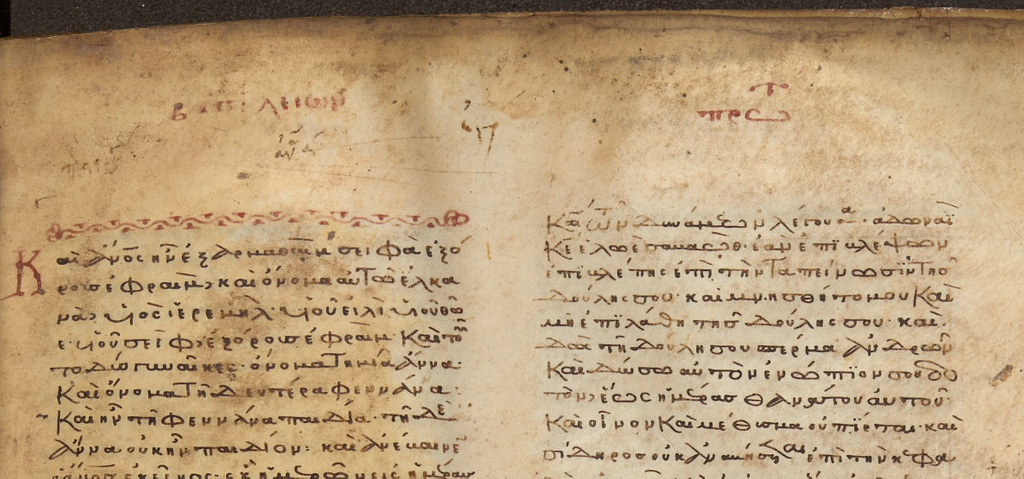 βασιλειῶν
πρωτ
Καὶ ἄνος ἦν ἐξ ἁρμαθαιμ σειφὰ ἐξ ὄ
ρους ἐφραῒμ, καὶ ὄνομα αὐτῶ ἑλκα
νὰ, υἱὸς ἱερεμὴλ υἱοῦ εἰλὶ υἱοῦ θω
ε υἱοῦ σεὶφ, ἐξ ὄρους ἐφραῒμ. Καὶ τού
τω δύο γυναῖκες· ὄνομα τῆ μιᾶ ἄννα·
Καὶ ὄνομα τῆ δευτέρα φεννάνα·
Καὶ ἦν τῆ φεννάνα παιδία· τῆ δὲ
ἄννα οὐκ ἦν παιδίον· καὶ ἀνέβαινε
ἄνος ἐκεῖνος ἐξ ἡμερῶν εἰς ἡμέρας
Καὶ τῶν δυνάμεων λέγουσα· ἀδωναῒ
Κε ἐλωὲ σαβαώθ· ἐὰν ἐπιβλέψων
ἐπιβλέπης ἐπὶ τὴν ταπείνωσιν τῆς
δούλης σου· καὶ μνησθῆς μου Καὶ
μὴ ἐπιλάθη τῆς δούλης σου· καὶ
δῶς τῆ δούλη σου σπέρμα ἀνδρῶν
Καὶ δώσω αὐτὸν ἐνώπιον σου δο
τὸν, ἕως ἡμέρας θανάτου αὐτοῦ·
Καὶ οἶνον Καὶ μέθυσμα οὐ πίεται· καὶ
σίδηρος οὐκ ἀναβήσεται ἐπὶ τὴν κεφα